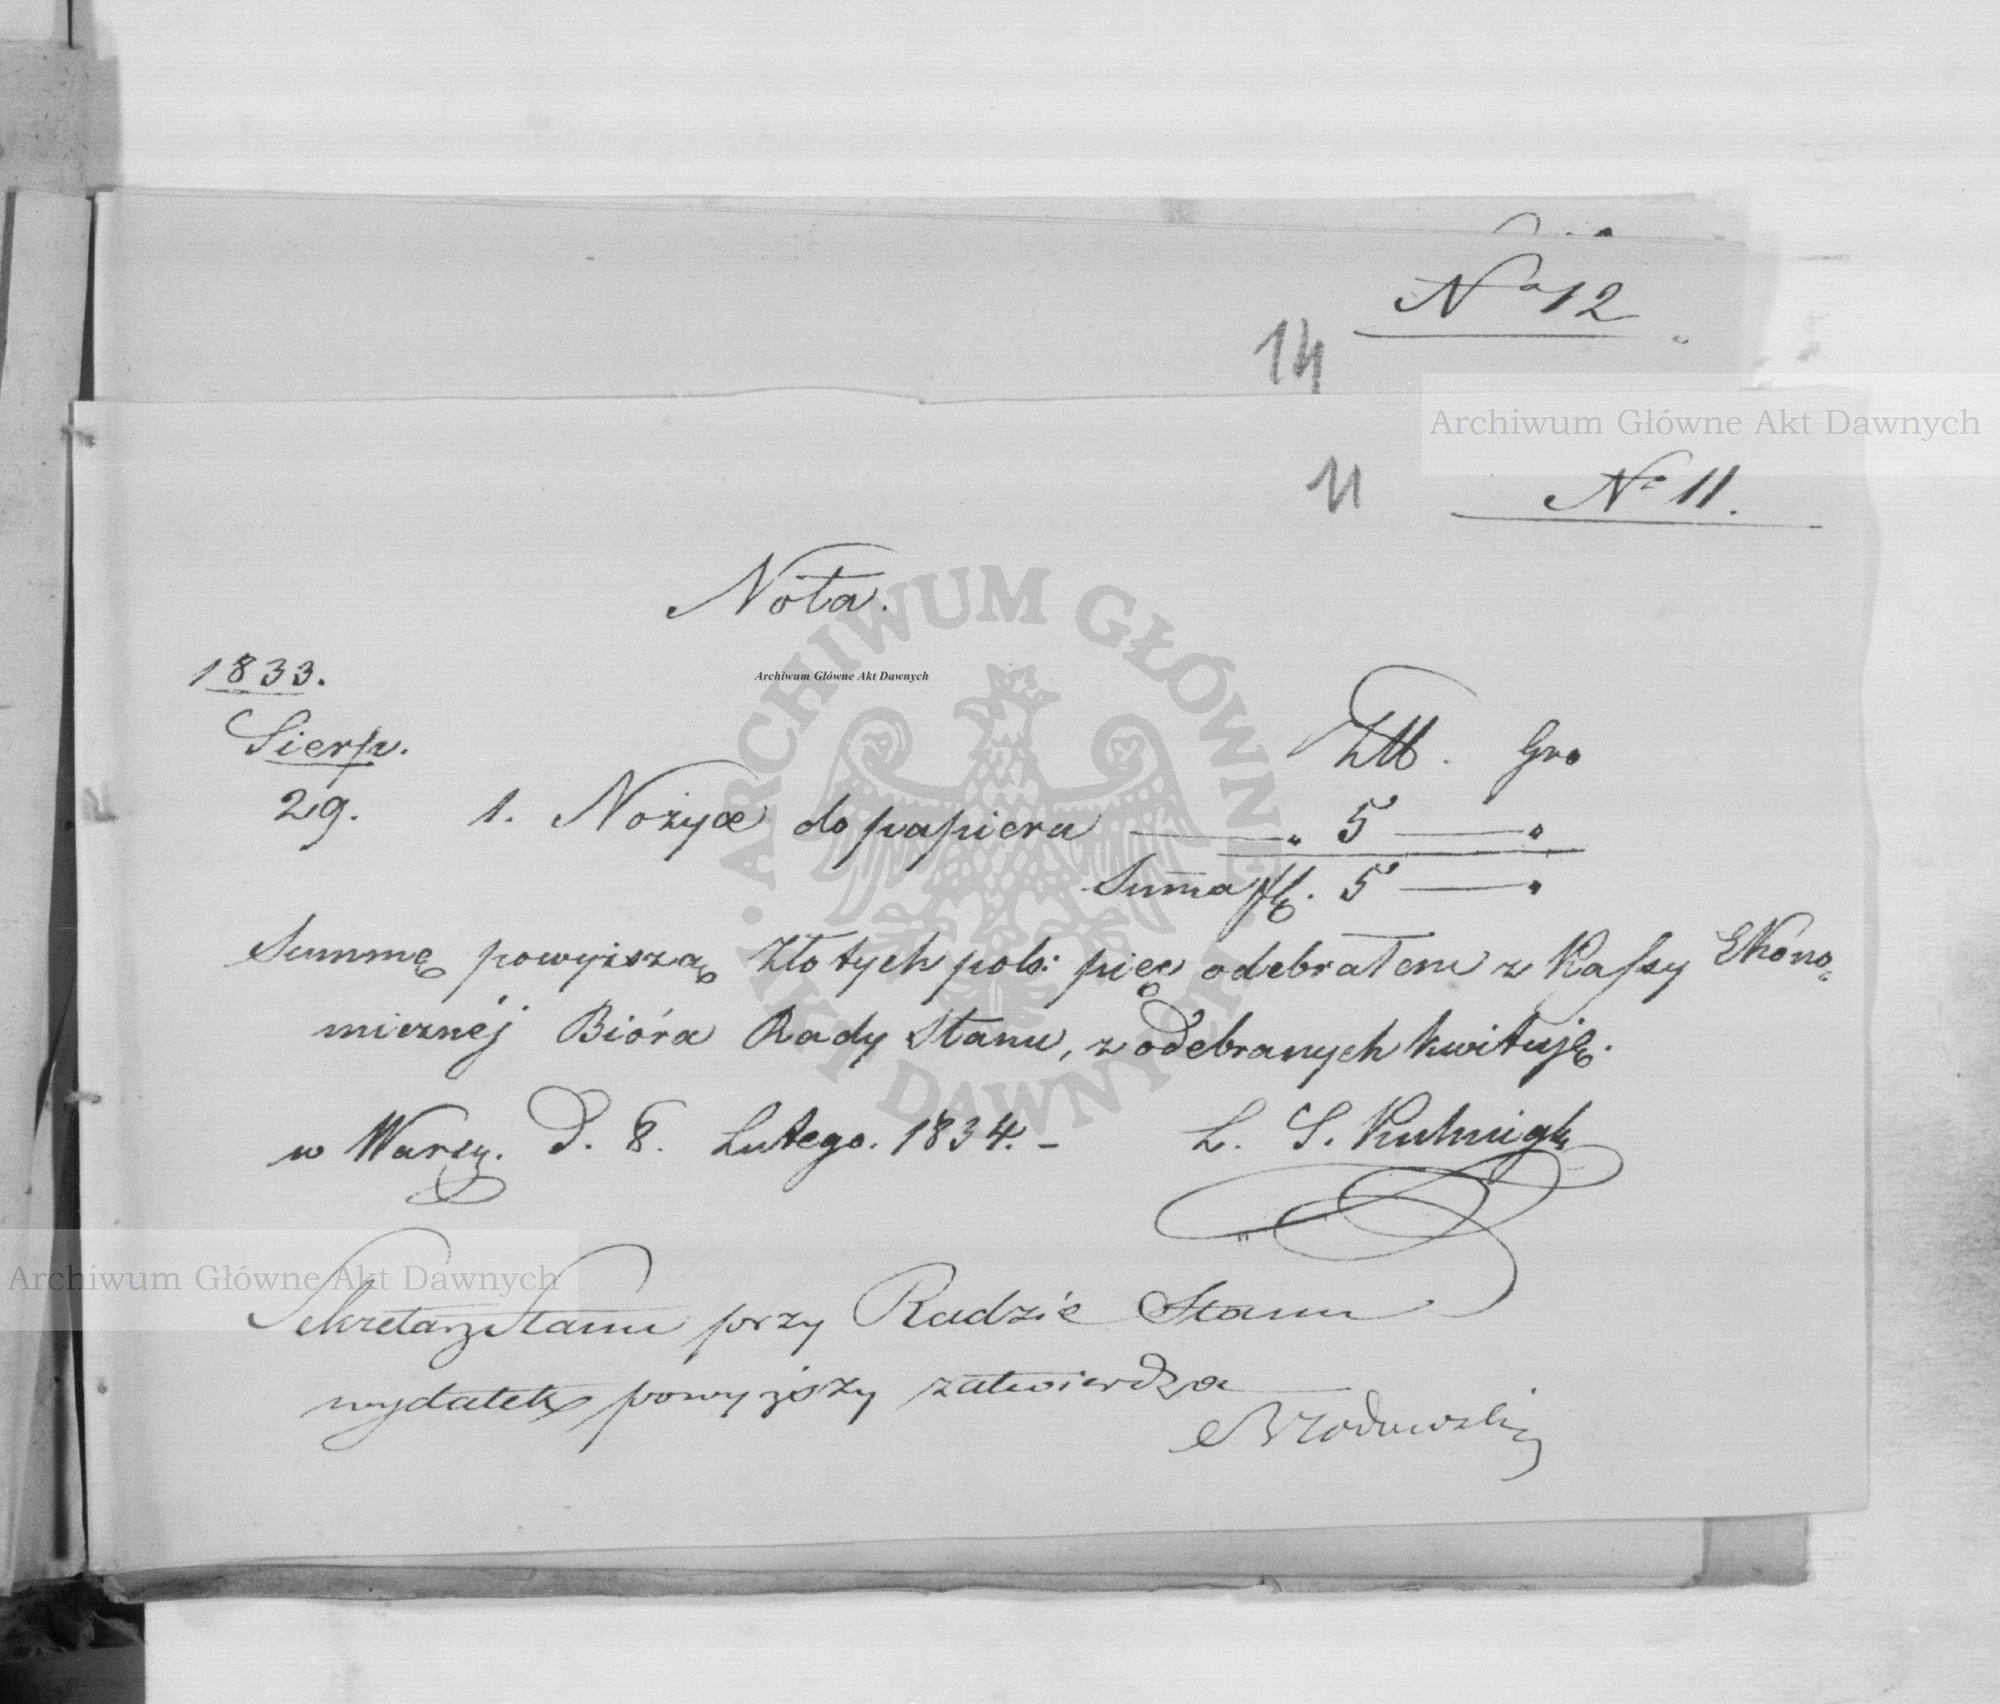 No 12
14
Archiwum Główne Akt Dawnych
11
No 11.
Nota.
ARCHIWUM GŁÓWNE AKT DAWNYCH
Archiwum Główne Akt Dawnych
1833.
Sierp.
Gro
29. 1. Nożyce do papieru — „ 5 — „
Suma fl. 5 — „
Summę powyższą Złotych pols: pięc odebrałem z Kassy Ekono-
micznéj Bióra Rady Stanu, z odebranych kwituję.
w Warsz. d. 8. Lutego. 1834. – L. S. Kuhnigk
Archiwum Główne Akt Dawnych
Sekretarz Stanu przy Radzie Stanu
wydatek powyższy zatwierdza